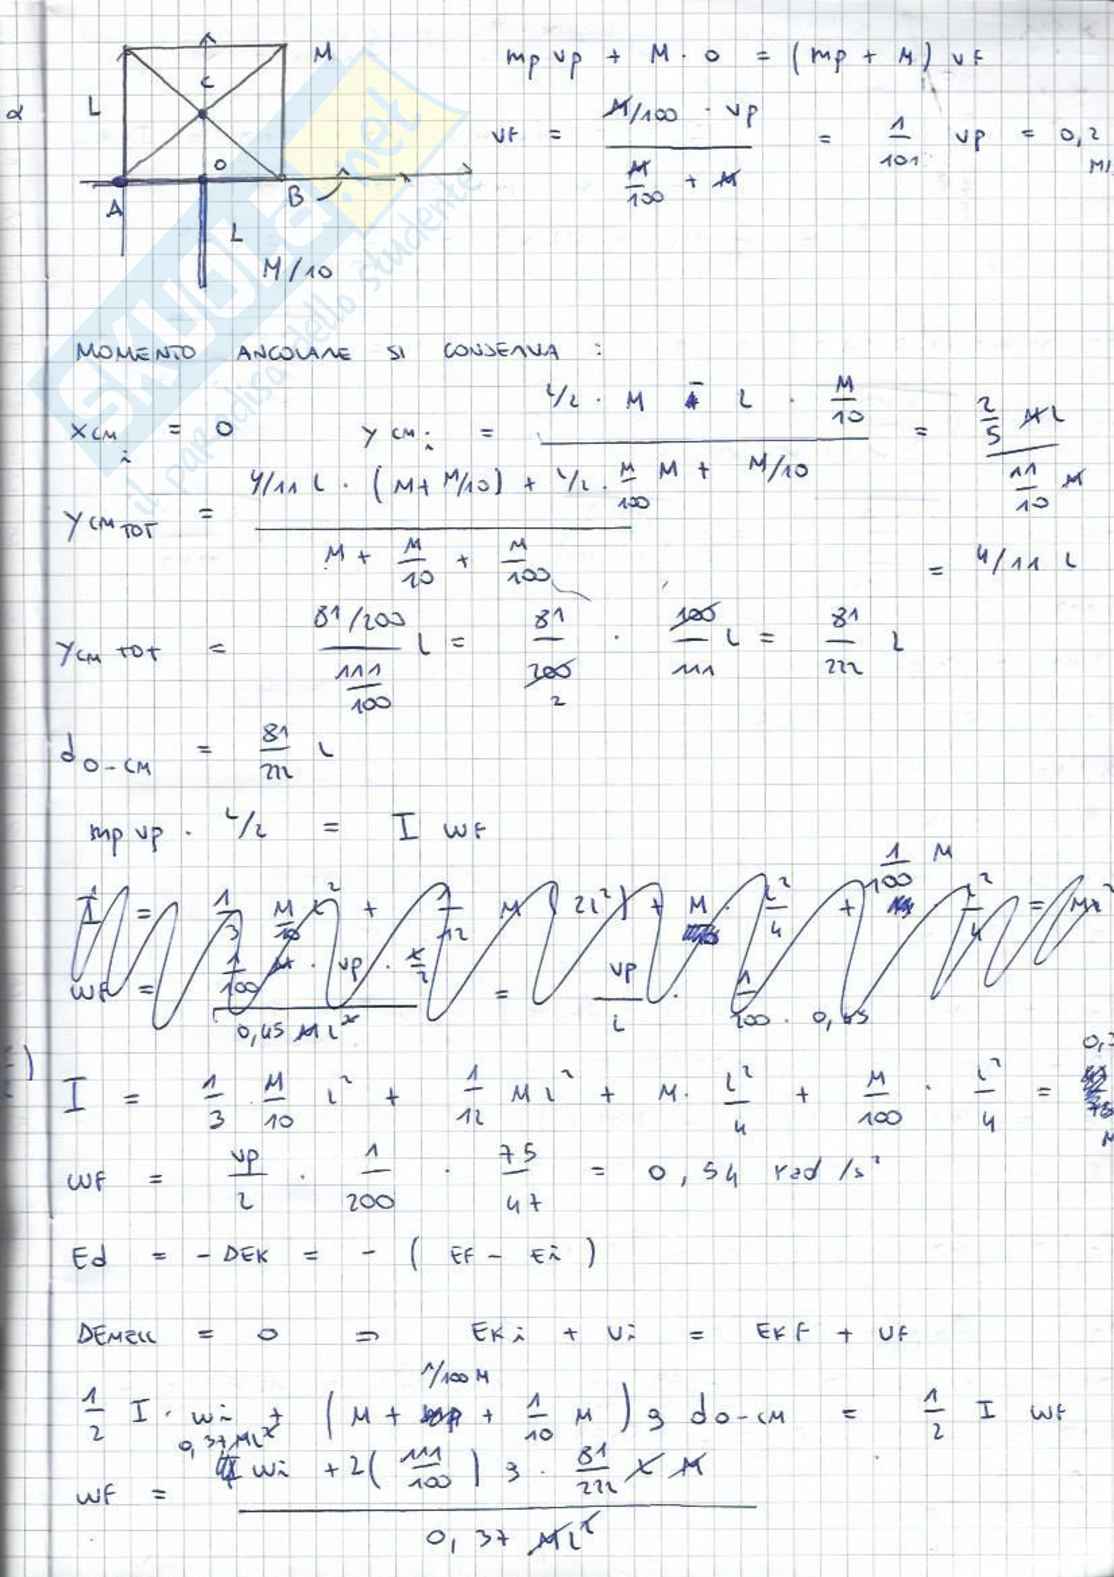 M
mp vp + M · 0 = (mp + M) vf
C
α
L
vf = M/100 · vp / (M/100 + M) = 1/101 vp = 0,2
M/
O
A
B
L
M/10
SKUOLA.net
il paradiso dello studente
MOMENTO ANGOLARE SI CONSERVA :
xcm i = 0 ycm i = (L/2 · M - L · M/10) / (M + M/10) = (2/5 M L) / (11/10 M)
= 4/11 L
ycm TOT = (4/11 L · (M + M/10) + L/2 · M/100) / (M + M/10 + M/100)
ycm TOT = (81/200) / (111/100) L = 81/200 2 · 100/111 L = 81/222 L
d O-CM = 81/222 L
mp vp · L/2 = I wf
I = 1/3 M/10 L² + 1/12 M (2L²) + M · L²/4 + 1/100 M L²/4 = ML²
wf = (1/100 M · vp · L/2) / (0,45 ML²) = vp/L · 1/200 · 0,45
I = 1/3 · M/10 L² + 1/12 M L² + M · L²/4 + M/100 · L²/4 = 0,3
M
wf = vp/L · 1/200 · 75/47 = 0,54 rad/s²
Ed = - DEK = - ( EF - Ei )
DEMECC = 0 ⇒ EKi + Ui = EKF + UF
1/2 I · wi + (M + 1/100 M + 1/10 M) g do-cm = 1/2 I wf
wf = (0,37 ML² wi + 2(111/100) g · 81/222 L M) / (0,37 ML²)